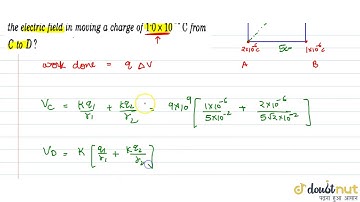 the electric field in moving a charge of 1·0 x 10 C from
C to D ?
2x10⁻⁶c 5cm 1x10⁻⁶c
work done = q ΔV A B
V_C = Kq₁/r₁ + Kq₂/r₂ = 9x10⁹ [ 1x10⁻⁶/5x10⁻² + 2x10⁻⁶/5√2x10⁻² ]
V_D = K [ q₁/r₁ + Kq₂/r₂ ]
doubtnut
पढ़ना हुआ आसान